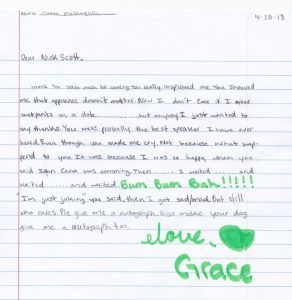 4-23-13
Dear Nick Scott,
Thank you sooo much for coming. You really inspired me. You showed
me that apperence doesn't matter. Now I don't care if I wear
wetpants on a date.......... but anyway I just wanted to
say thanks. You were probally the best speaker I have ever
heard. Even though you made me cry. Not because what hap-
pend to you. It was because I was so happy when you
said John Cena was comming. Then...... I waited...... and
waited...... and waited. Bum Bum Bah!!!!!
"Im just joking" you said, then I got sad/mad. But still
who cares. Plz give me a autograph. Also make your dog
give me a autograph too.
love,
Grace